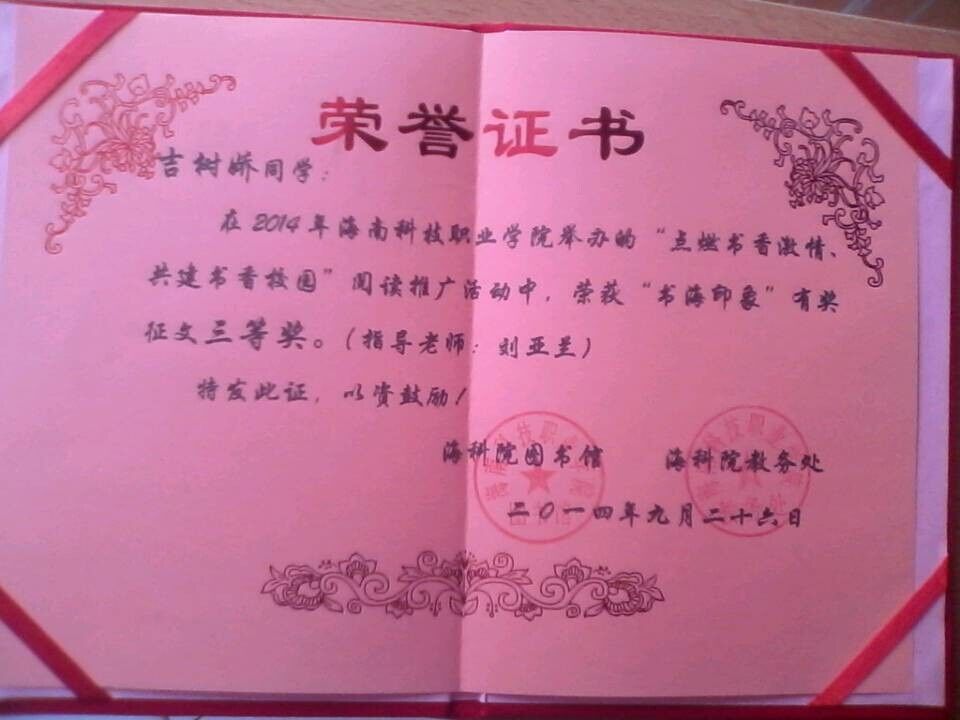 荣誉证书
吉树娇同学：
在2014年海南科技职业学院举办的“点燃书香激情、
共建书香校园”阅读推广活动中，荣获“书海印象”有奖
征文三等奖。（指导老师：刘亚兰）
特发此证，以资鼓励！
海科院图书馆 海科院教务处
二〇一四年九月二十六日